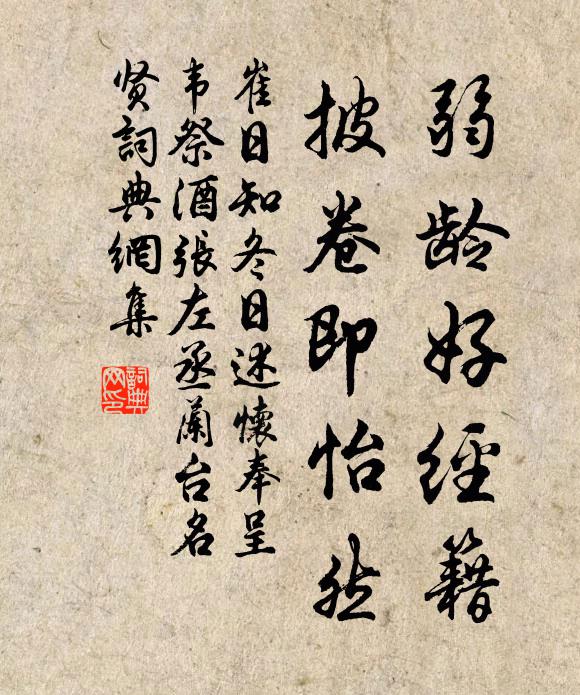 弱龄好經籍
披卷即怡然
崔日知冬日述懷奉呈
韦祭酒張左丞蘭台名
贤詞典網集
詞典網印